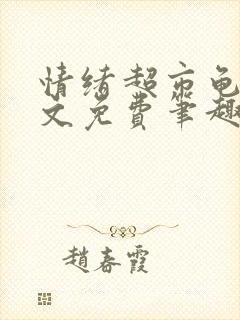 情绪超市龟
文免费笔趣
趙春霞